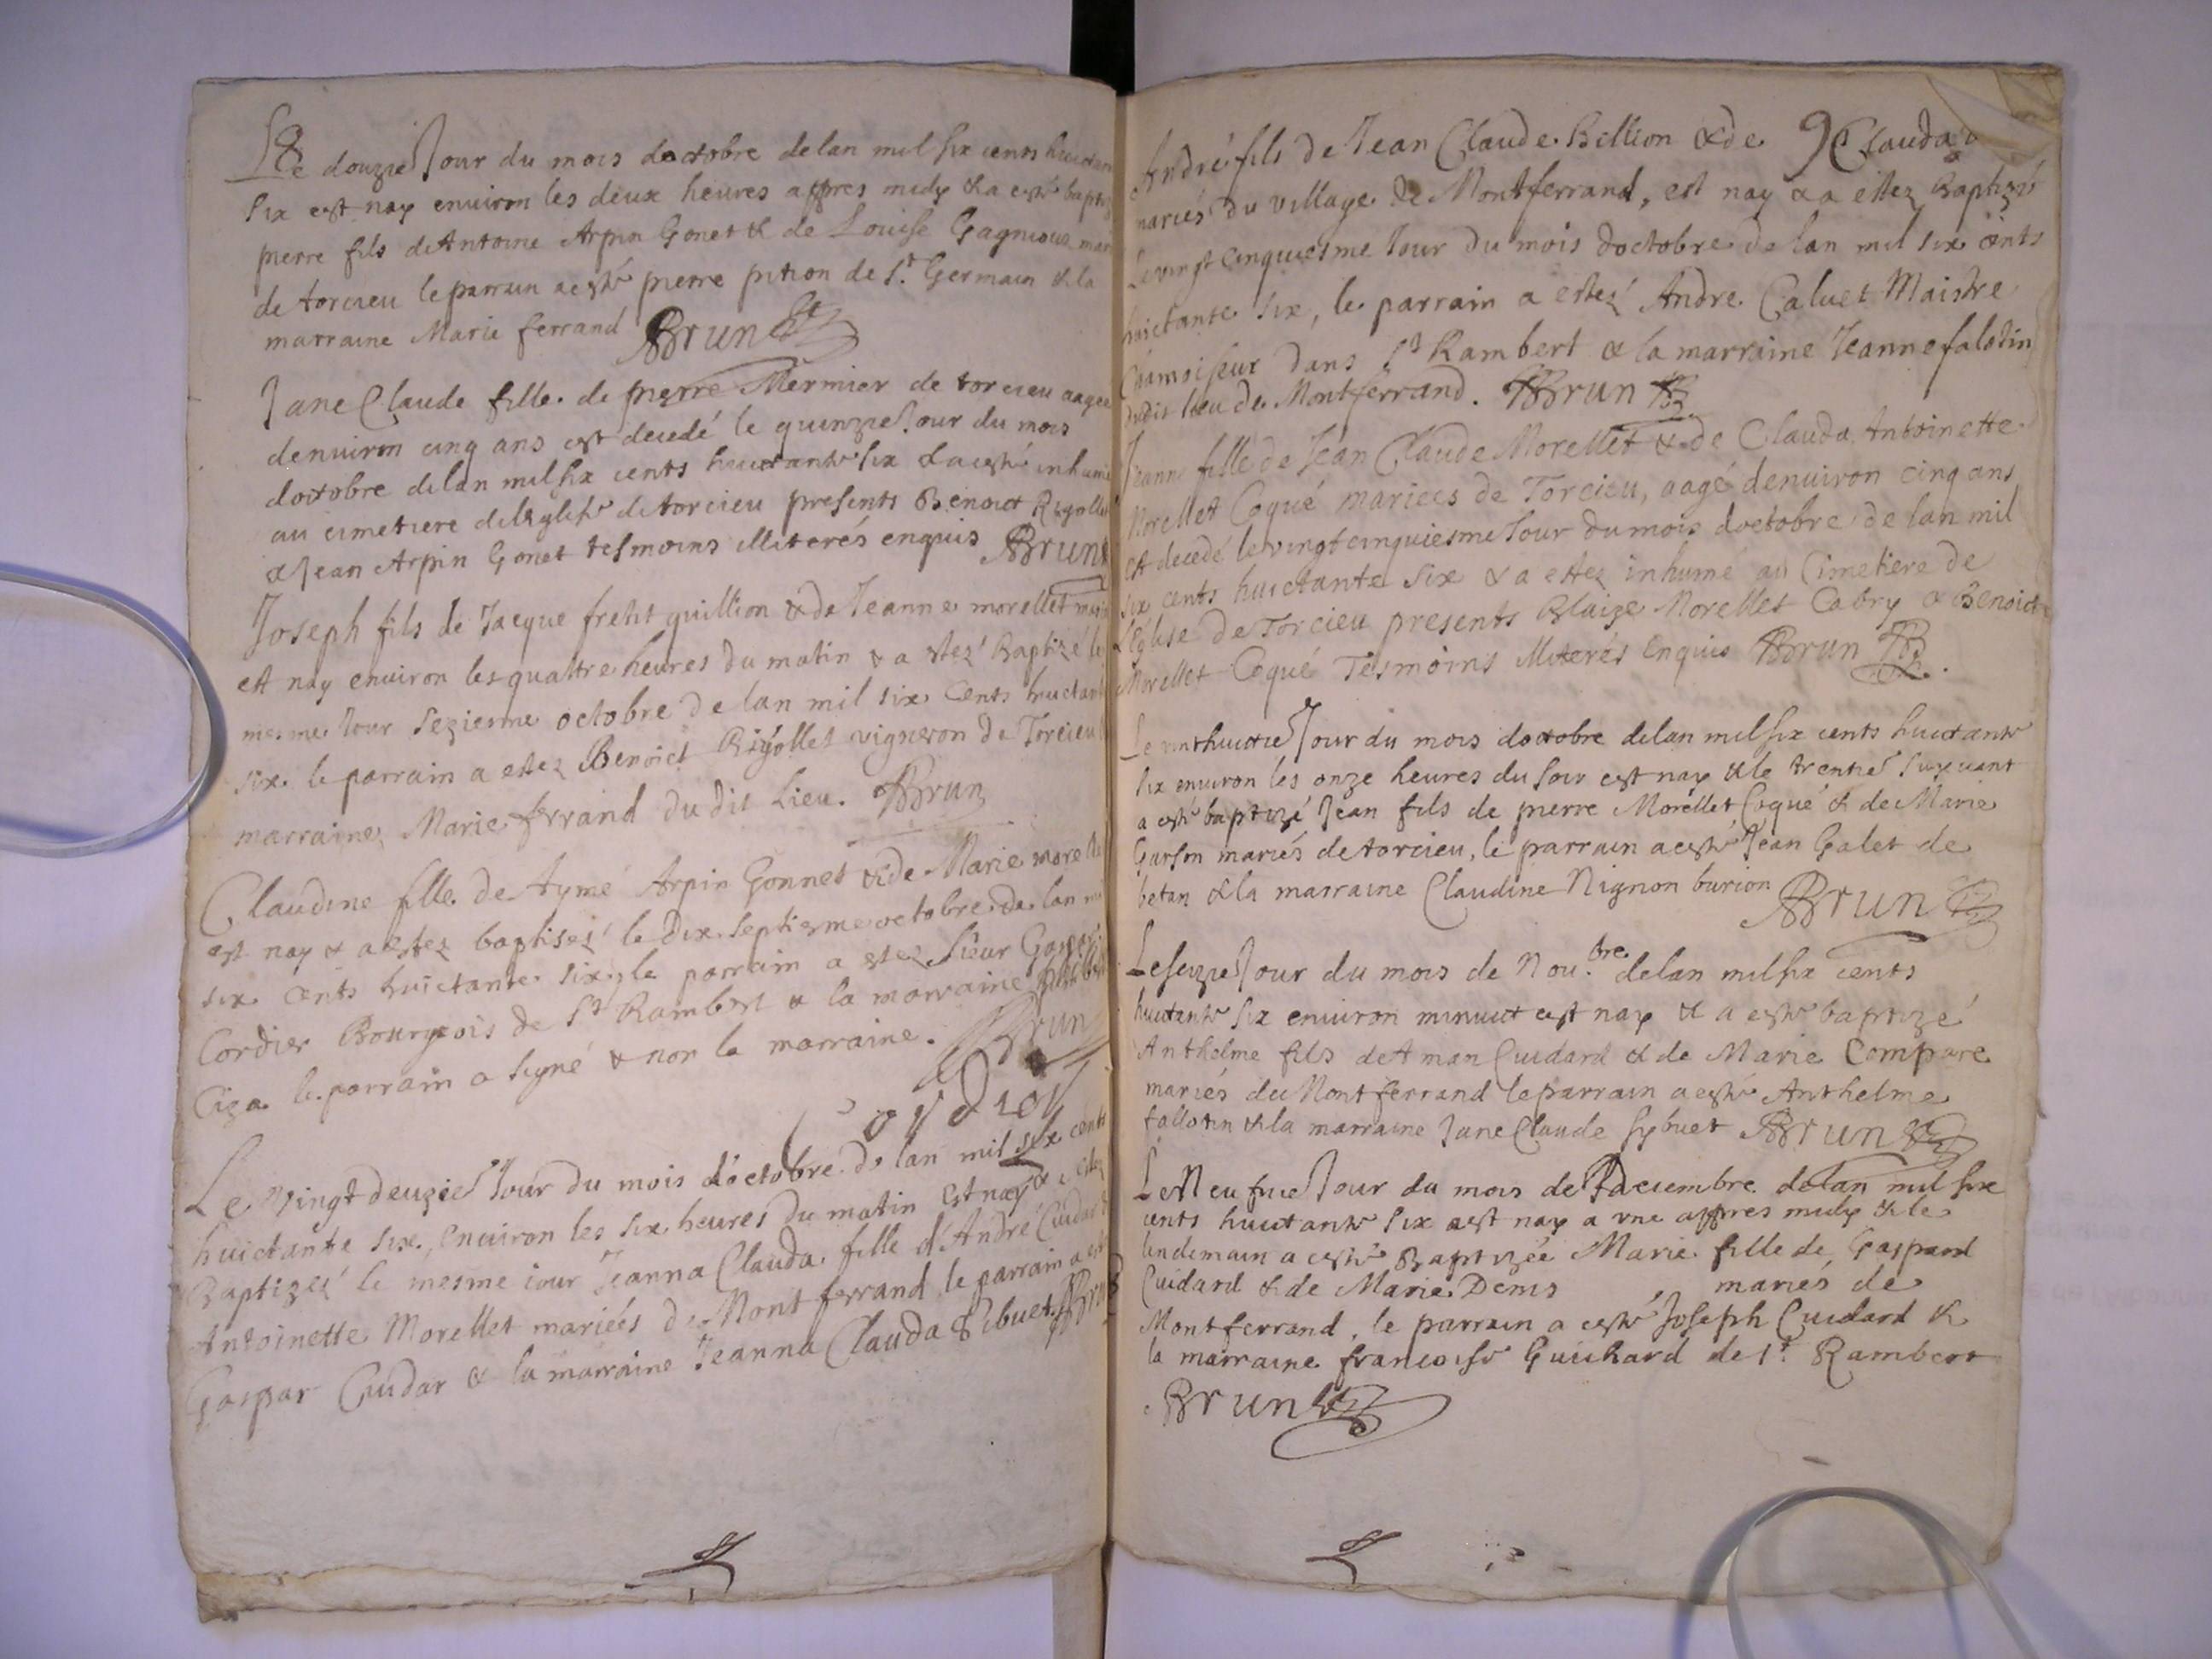 Le douzie Jour du mois doctobre de lan mil six cents huictante
six est nay environ les deux heures appres midy & a esté baptizé
pierre fils de Antoine Arpin Gonet & de Louise Gagnioue mariés
de torcieu le parrain a esté pierre pition de St. Germain & la
marraine Marie ferrand Brun
Jane Claude fille de pierre Mermier de torcieu aagee
denviron cinq ans est decedé le quinzie Jour du mois
doctobre de lan mil six cents huictante six & a esté inhumé
au cimetiere de leglise de torcieu presents Benoict Rigollet
& Jean Arpin Gonet tesmoins illiterés enquis Brun
Joseph fils de Jacque fretit quillion & de Jeanne morellet mariés
est nay environ les quattre heures du matin & a estez Baptizé le
mesme Jour seziesme octobre de lan mil six cents huictante
six le parrain a estez Benoict Rigollet vigneron de Torcieu
marraine Marie ferrand dudit Lieu. Brun
Claudine fille de Aymé Arpin Gonnet & de Marie morellet
est nay & a estez baptisez le dix septiesme octobre de lan mil
six cents huictante six, le parrain a estez sieur Gaspar
Cordier Bourgeois de St Rambert & la marraine
Ciza le parrain a signé & non la marraine. Brun
Cordier
Le vingt deuzie Jour du mois doctobre de lan mil six cents
huictante six, environ les six heures du matin est nay & a estez
Baptizez le mesme iour Jeanna Clauda fille d'André Cuidard
Antoinette Morellet mariées de Mont ferrand le parrain a esté
Gaspar Cuidar & la marraine Jeanna Clauda Sibuet. Brun
André fils de Jean Claude Billion & de Clauda
mariés du village de Montferrand, est nay & a estez Baptizé
Le vingt cinquiesme Jour du mois doctobre de lan mil six cents
huictante six, le parrain a estez André Caluet Maistre
Chamoiseur dans St Rambert & la marraine Jeanne falotin
dudit lieu de Montferrand. Brun
Jeanne fille de Jean Claude Morellet & de Clauda Antoinette
Morellet Coqué mariees de Torcieu, aagé denviron cinq ans
est decedé le vingt cinquiesme Jour du mois doctobre de lan mil
six cents huictante six & a estez inhumé au Cimetiere de
L'église de Torcieu presents Blaize Morellet Cabry & Benoict
Morellet Coqué Tesmoins illiterés enquis Brun
Le vinthuictie Jour du mois doctobre de lan mil six cents huictante
six environ les onze heures du soir est nay & le trentie suyuant
a esté baptizé Jean fils de pierre Morellet Coqué & de Marie
Garson mariés de torcieu, le parrain a esté Jean Galet de
betan & la marraine Claudine Nignon burion Brun
Le seizie Jour du mois de Nou.bre de lan mil six cents
huictante six environ minuict est nay & a esté baptizé
Anthelme fils de Aman Cuidard & de Marie Compare
mariés du Montferrand le parrain a esté Anthelme
fallotin & la marraine Jane Claude Sybuet Brun
Le Neufuie Jour du mois de Decembre de lan mil six
cents huictante six est nay a une appres midy & le
lendemain a esté Baptizée Marie fille de Gaspard
Cuidard & de Marie Denis mariés de
Montferrand, le parrain a esté Joseph Cuidard &
la marraine francoise Guichard de St. Rambert
Brun